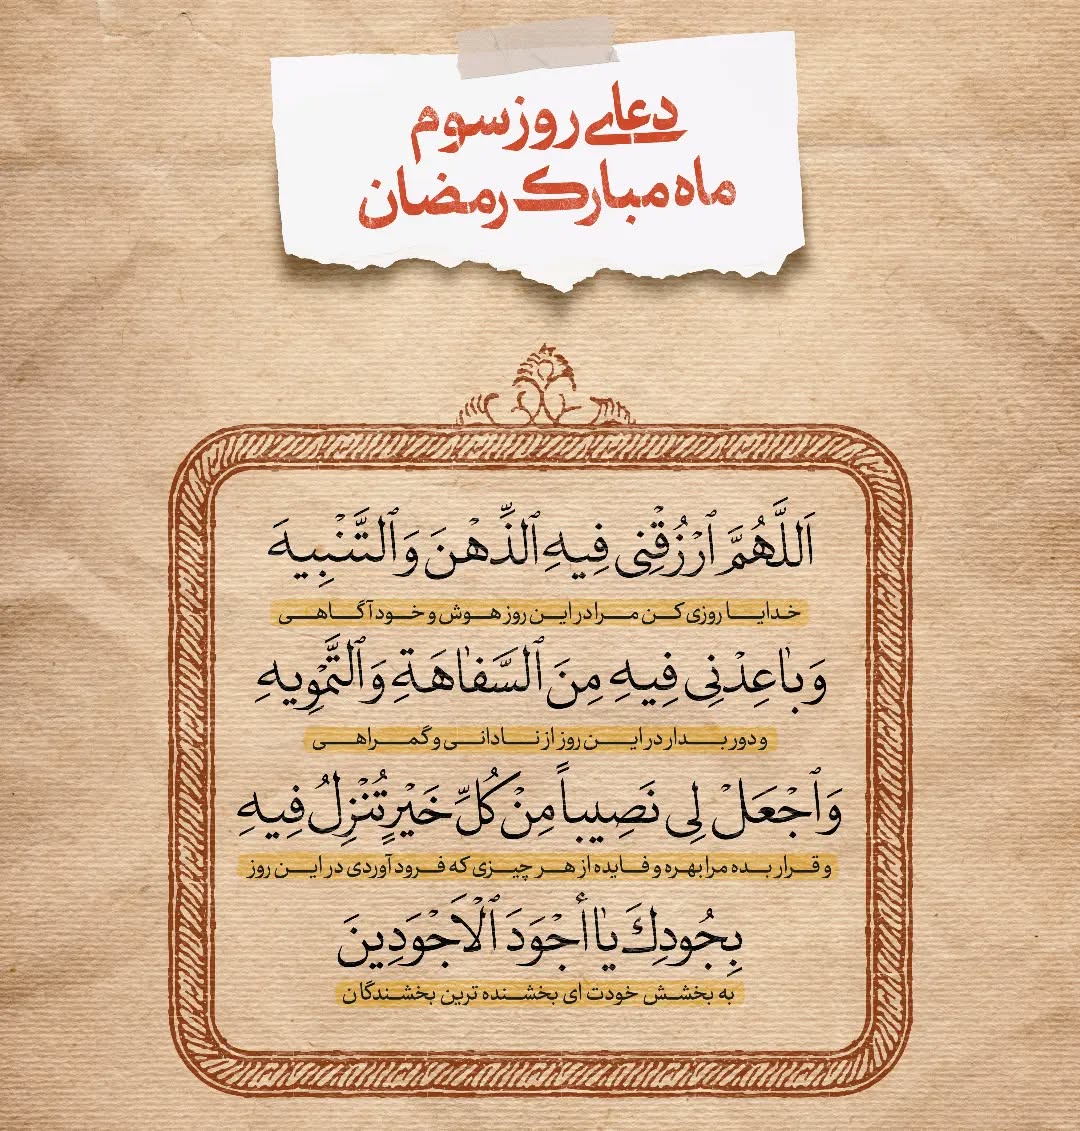 دعای روز سوم
ماه مبارک رمضان
اَللَّهُمَّ ٱرْزُقْنِي فِيهِ ٱلذِّهْنَ وَٱلتَّنْبِيهَ
خدایا روزی کن مرا در این روز هوش و خودآگاهی
وَبٰاعِدْنِي فِيهِ مِنَ ٱلسَّفٰاهَةِ وَٱلتَّمْوِيهِ
و دور بدار در این روز از نادانی و گمراهی
وَٱجْعَلْ لِي نَصِيباً مِنْ كُلِّ خَيْرٍ تُنْزِلُ فِيهِ
و قرار بده مرا بهره و فایده از هر چیزی که فرود آوردی در این روز
بِجُودِكَ يٰا أَجْوَدَ ٱلْأَجْوَدِينَ
به بخشش خودت ای بخشنده ترین بخشندگان